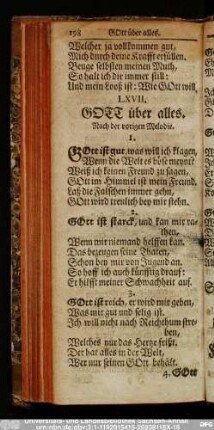 198 GOtt über alles.
Welcher ja vollkommen gut,
Mich durch deine Krafft erfüllen,
Beuge selbsten meinen Muth,
So halt ich dir immer still:
Und mein Looß ist: Wie GOtt will.
LXVII.
GOTT über alles.
Nach der vorigen Melodie.
1.
GOtt ist gut, was will ich klagen,
Wenn die Welt es böse meynt?
Weiß ich keinen Freund zu sagen,
GOtt im Himmel ist mein Freund,
Laß die Falschen immer gehn,
GOtt wird treulich bey mir stehn.
2.
GOtt ist starck, und kan mir ra-
then,
Wenn mir niemand helffen kan,
Das bezeugen seine Thaten,
Schon bey mir von Jugend an.
So hoff ich auch künfftig drauf:
Er hilfft meiner Schwachheit auf.
3.
GOtt ist reich, er wird mir geben,
Was mir gut und selig ist.
Ich will nicht nach Reichthum stre-
ben,
Welches nur das Hertze frißt.
Der hat alles in der Welt,
Wer nur seinen GOtt behält.
4. GOtt
Universitäts- und Landesbibliothek Sachsen-Anhalt